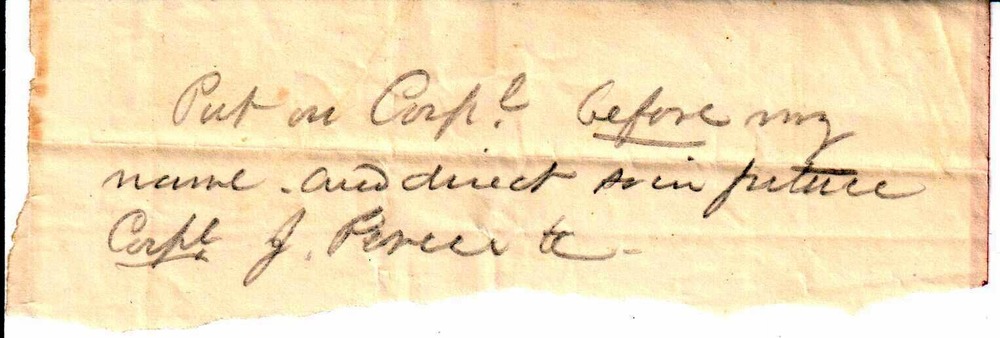 Put on Corpl. before my
name. and direct so in future
Corpl. J. &c -